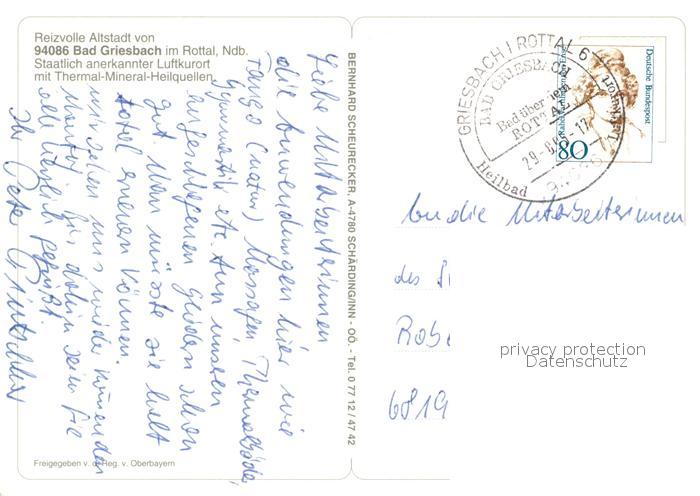 Reizvolle Altstadt von
94086 Bad Griesbach im Rottal, Ndb.
Staatlich anerkannter Luftkurort
mit Thermal-Mineral-Heilquellen
Liebe Mitarbeiterinnen
die Anwendungen hier wie
Fango (natur) Massagen, Thermalbäder,
Gymnastik etc. tun unseren
angeschlagenen Glieder schon
gut. Man müsste sie halt
total erneuern können.
wir sehen uns wieder am
Montag, bis dahin seien Sie
alle herzlich gegrüßt.
Ihr Peter
Freigegeben v. d. Reg. v. Oberbayern
BERNHARD SCHEURECKER, A-4780 SCHÄRDING/INN - OÖ. - Tel. 0 77 12 / 47 42
GRIESBACH I ROTTAL 6
BAD GRIESBACH
Bad über dem
ROTTAL
29.-8.95-17
94086
Heilbad
Luftkurort
Deutsche Bundespost
80
An die Mitarbeiterinnen
des
Robe
6819
privacy protection
Datenschutz